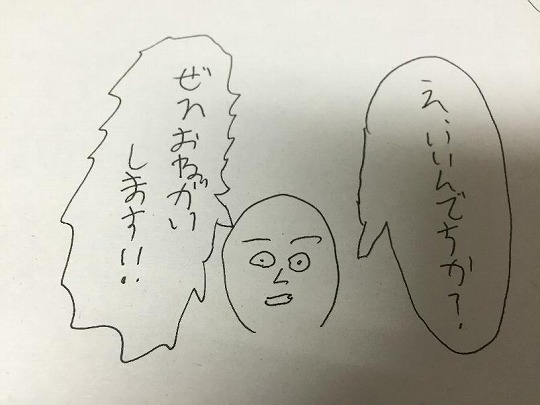 え、いいんですか?
ぜひおねがい
します!!